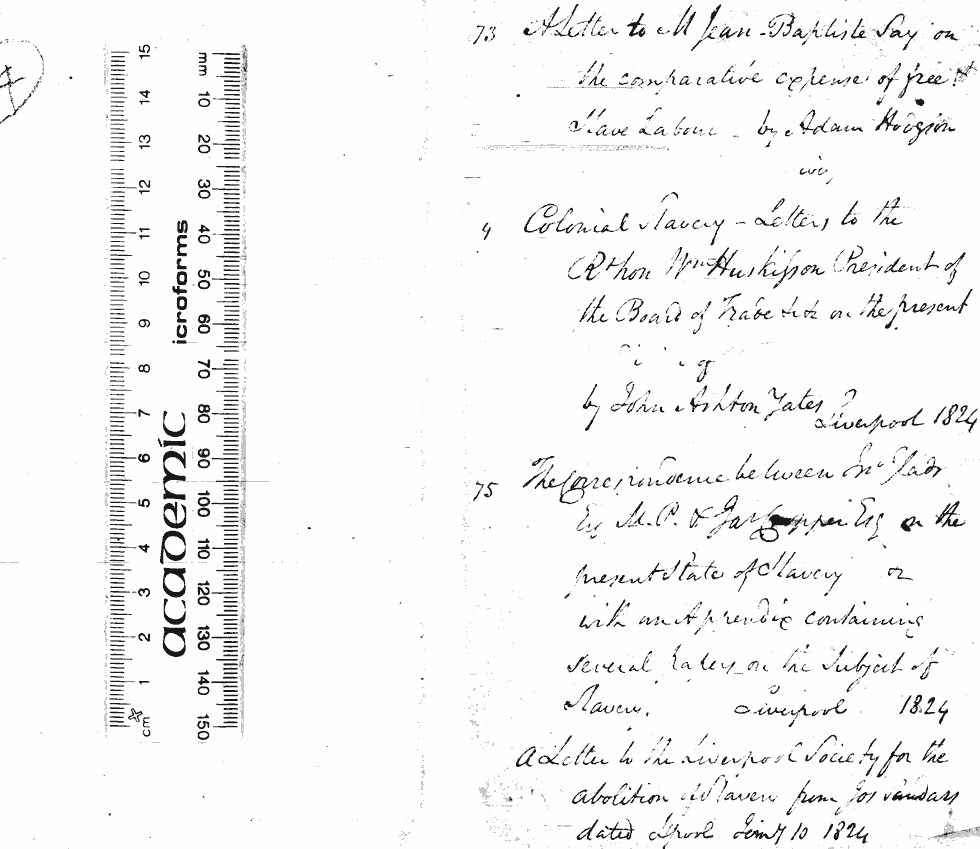 73 A Letter to M Jean-Baptiste Say on
the comparative expense of free &
Slave Labour - by Adam Hodgson
4 Colonial Slavery - Letters to the
Rt hon Wm Huskisson President of
the Board of Trade &c &c on the present
by John Ashton Yates
Liverpool 1824
75 The Correspondence between Jno Glads
Esq M.P. & Jas Cropper Esq on the
present State of Slavery
with an Appendix containing
several papers on the Subject of
Slavery. Liverpool 1824
A Letter to the Liverpool Society for the
abolition of Slavery from Jos Sandars
dated Lpool 10 1824
academic
icroforms
mm 10 20 30 40 50 60 70 80 90 100 110 120 130 140 150
cm 1 2 3 4 5 6 7 8 9 10 11 12 13 14 15